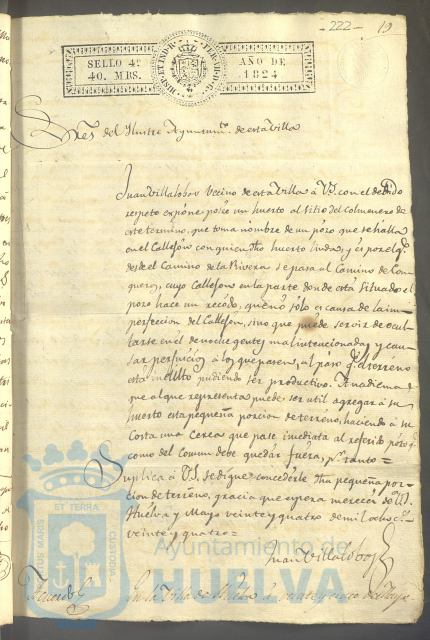 - 222 -
19
SELLO 4º
40. MRS.
HISP. ET IND. R. FER. VII. D. G.
AÑO DE
1824
Sres del Ilustre Ayuntamto de esta Villa
Juan Villalobos vecino de esta Villa á V.S. con el devido
respeto expone posée un huerto al sitio del Colmenero de
este termino, que toma nombre de un pozo que se halla
en el Callejon con quien dho huerto linda, y es por el q.
desde el Camino de la Rivera se pasa al Camino de
cuyo Callejon en la parte donde está situado el
pozo hace un recódo, que no solo es causa de la im-
perfeccion del Callejon, sino que puede servir de ocul-
tarse en él de noche gentes mal intencionadas y cau-
sar perjuicios á los que pasen, al paso q. el terreno
está inculto pudiendo ser productivo. A nadie mas
que al que representa puede ser util agregar á su
huerto esta pequeña porcion de terreno, haciendo á su
costa una cerca que pase imediata al referido pozo q.
como del Comun debe quedar fuera, pr. tanto =
Suplica á V.S. se digne concederle dha pequeña por-
cion de terreno, gracia que espera merecer de V.S.
Huelva y Mayo veinte y quatro de mil ochocs.
veinte y quatro =
Juan Villalobos
En la Villa de Huelva á veinte y cinco de Mayo
PORTUS MARIS ET TERRAE CUSTODIA
Ayuntamiento de
HUELVA